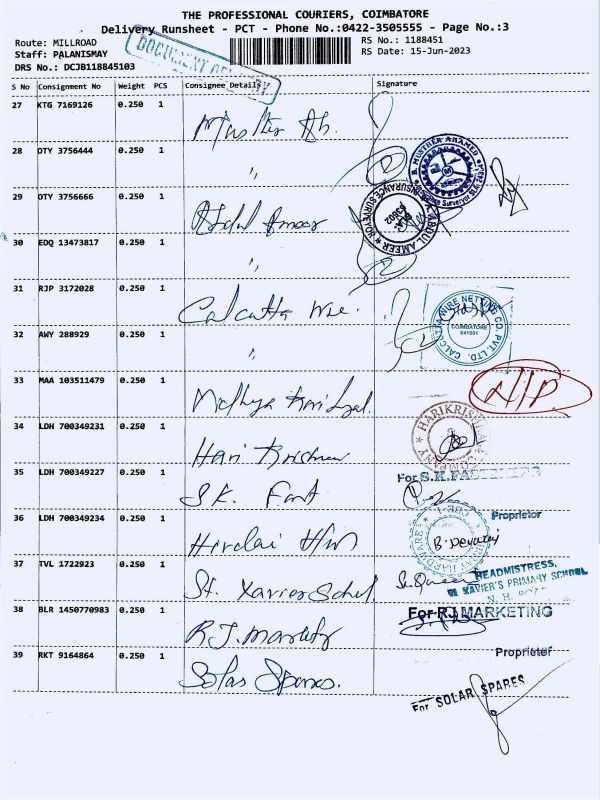 THE PROFESSIONAL COURIERS, COIMBATORE
Delivery Runsheet - PCT - Phone No.:0422-3505555 - Page No.:3
Route: MILLROAD
Staff: PALANISMAY
DRS No.: DCJB118845103
RS No.: 1188451
RS Date: 15-Jun-2023
DOCUMENT
S No Consignment No Weight PCS Consignee Details Signature
27 KTG 7169126 0.250 1
28 OTY 3756444 0.250 1 "
29 OTY 3756666 0.250 1 Abdul Ameer
ABDUL AMEER
INSURANCE SURVEYOR
30 EDQ 13473817 0.250 1 "
31 RJP 3172028 0.250 1 Calcutta Wire.
CALCUTTA WIRE NETTING CO. PVT. LTD.
COIMBATORE
641001
32 AWY 288929 0.250 1 "
33 MAA 103511479 0.250 1
34 LDH 700349231 0.250 1 Hari Krishna
HARIKRISHNA
COMPANY
35 LDH 700349227 0.250 1 S.K. Fast
For S.K. FASTENERS
Proprietor
36 LDH 700349234 0.250 1
HARDWARE
CBE-1
B. Devaraj
37 TVL 1722923 0.250 1 St. Xavier School
HEADMISTRESS,
ST XAVIER'S PRIMARY SCHOOL
38 BLR 1450770983 0.250 1 R.J. Marketg
For RJ MARKETING
Proprietor
39 RKT 9164864 0.250 1 Solar Spares.
For SOLAR SPARES